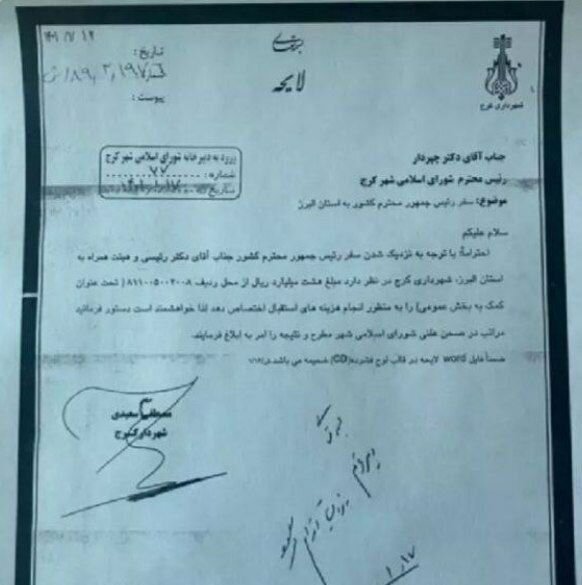 تاریخ :
پیوست :
لایحه
شهرداری کرج
ورود به دبیرخانه شورای اسلامی شهر کرج
شماره : ۷۷
تاریخ
جناب آقای دکتر چهردار
رئیس محترم شورای اسلامی شهر کرج
موضوع: سفر رئیس جمهور محترم کشور به استان البرز
سلام علیکم
احتراماً، با توجه به نزدیک شدن سفر رئیس جمهور محترم کشور جناب آقای دکتر رئیسی و هیئت همراه به
استان البرز، شهرداری کرج در نظر دارد مبلغ هشت میلیارد ریال از محل ردیف ۸۱۱۰۰۵۰۰۲۰۰۸ ( تحت عنوان
کمک به بخش عمومی) را به منظور انجام هزینه های استقبال اختصاص دهد لذا خواهشمند است دستور فرمائید
مراتب در صحن علنی شورای اسلامی شهر مطرح و نتیجه را امر به ابلاغ فرمایند.
ضمناً فایل word لایحه در قالب لوح فشرده(CD) ضمیمه می باشد
مصطفی سعیدی
شهردار کرج